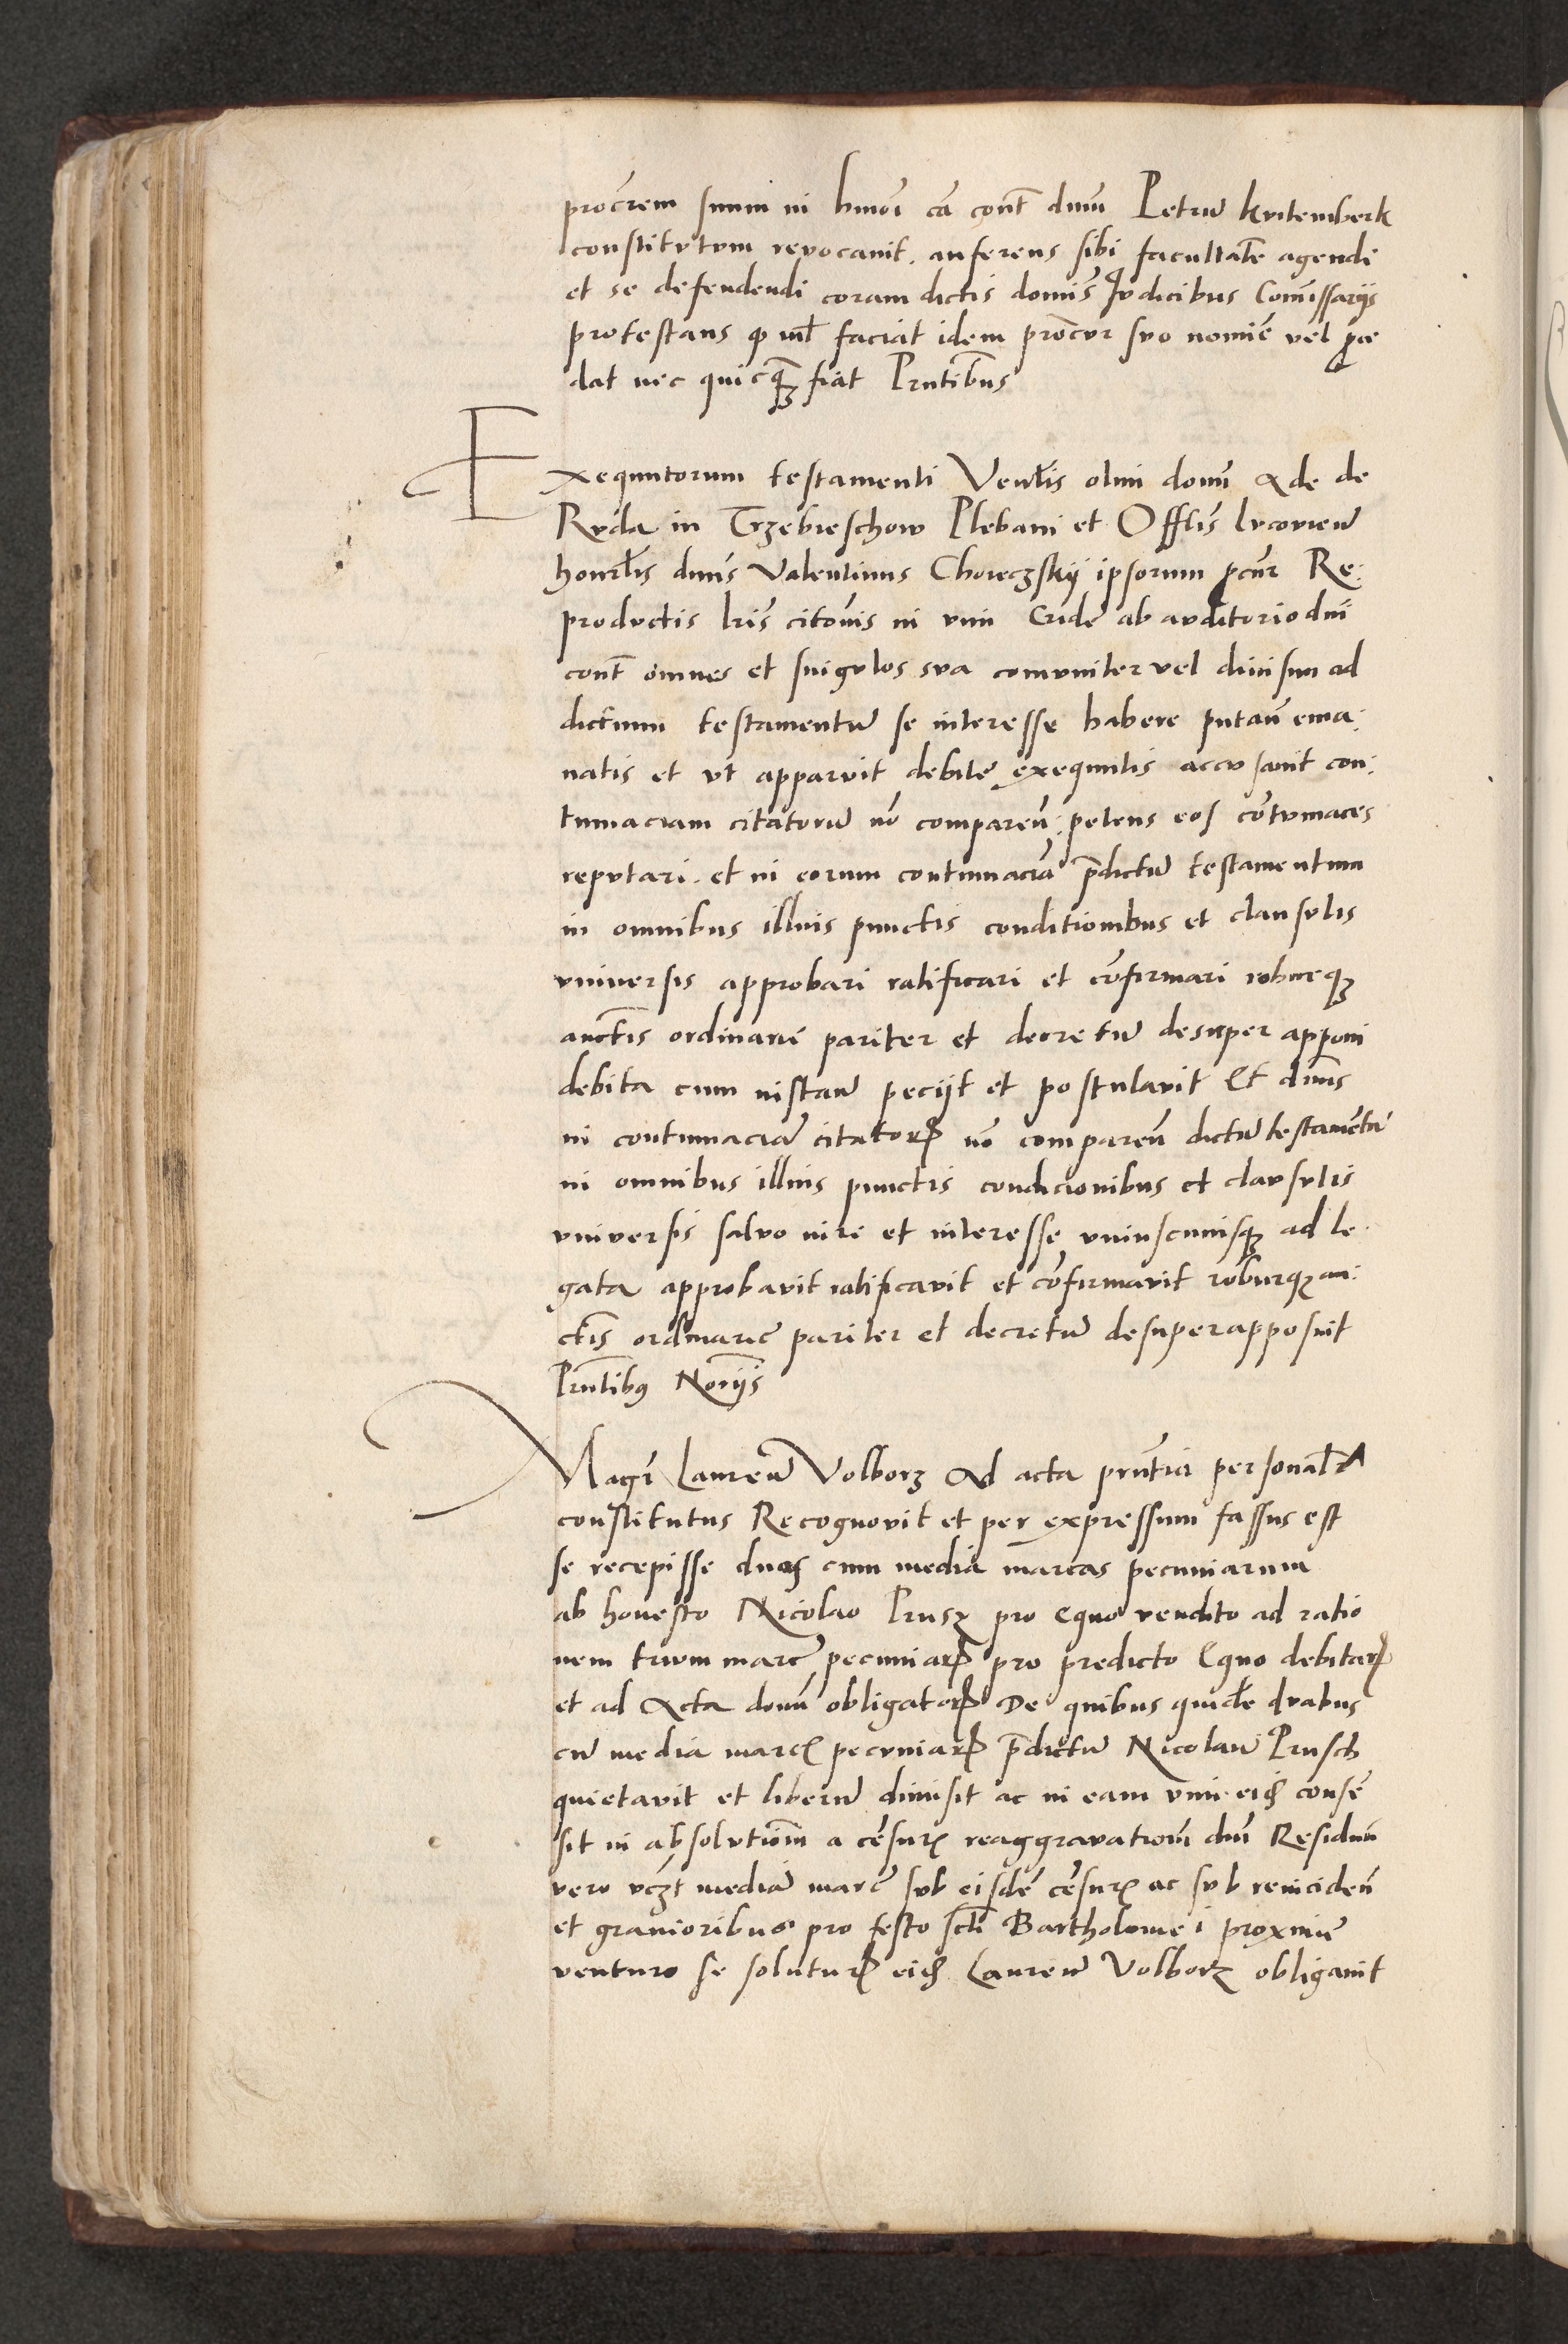 procrem suum in hmoi ca cont dnum Petrum kvitemberk
constitutum revocavit. auferens sibi facultate agendi
et se defendendi coram dictis domis Judicibus Comissarijs
protestans q nil faciat idem procur suo nomie vel
dat nec quicqz fiat Pntibus
Exequutorum testamenti Venlis olim domi Ade de
Ruda in Trzebieschow Plebani et Offlis lucovien
honorlis dnus Valentinus Choreczskij ipsorum pcur Re:
productis lris citonis in vim Cride ab auditorio dni
cont omnes et singulos sua comuniter vel divisim ad
dictum testamentum se interesse habere putan ema:
natis et ut apparuit debite exequutis accusavit con:
tumaciam citatorum no comparen: petens eos contumaces
reputari. et in eorum contumacia predictum testamentum
in omnibus illius punctis conditionibus et clausulis
universis approbari ratificari et confirmari roburqz
auctis ordinarie pariter et decretum desuper apponi
debita cum instan peciit et postulavit Et dnus
in contumacia citator no comparen dictum testamentu
in omnibus illius punctis condicionibus et clausulis
universis salvo iure et interesse uniuscuiusqz ad le
gata approbavit ratificavit et confirmavit roburqz au:
ctis ordinarie pariter et decretum desuper apposuit
Pntibus Norijs
Magr Lauren Volborz Ad acta pntia personal
constitutus Recognovit et per expressum fassus est
se recepisse duas cum media marcas pecuniarum
ab honesto Nicolao Prusz pro Equo vendito ad ratio
nem trium marc pecuniar pro predicto Equo debitar
et ad Acta domi obligator De quibus quide duabus
cum media marc pecuniar predictum Nicolaum Prusch
quietavit et liberum dimisit ac in eam vim eius conse
sit in absolutiom a censur reaggravationi dni Residuu
vero vczt media marc sub eisde censur ac sub reinciden
et gravioribus pro festo scti Bartholomei proxime
venturo se solutur eid Lauren Volborz obligavit